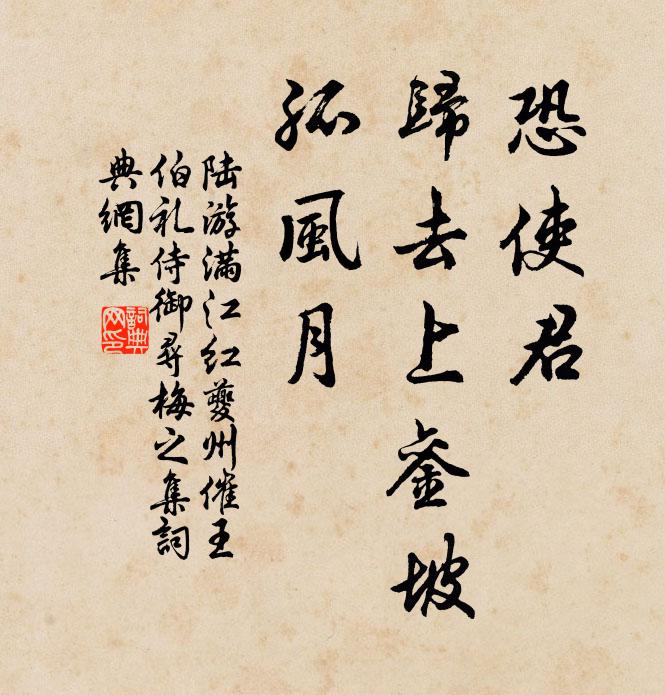 恐使君
歸去上銮坡
孤風月
陆游满江红夔州催王
伯礼侍御尋梅之集詞
典網集
詞典网印